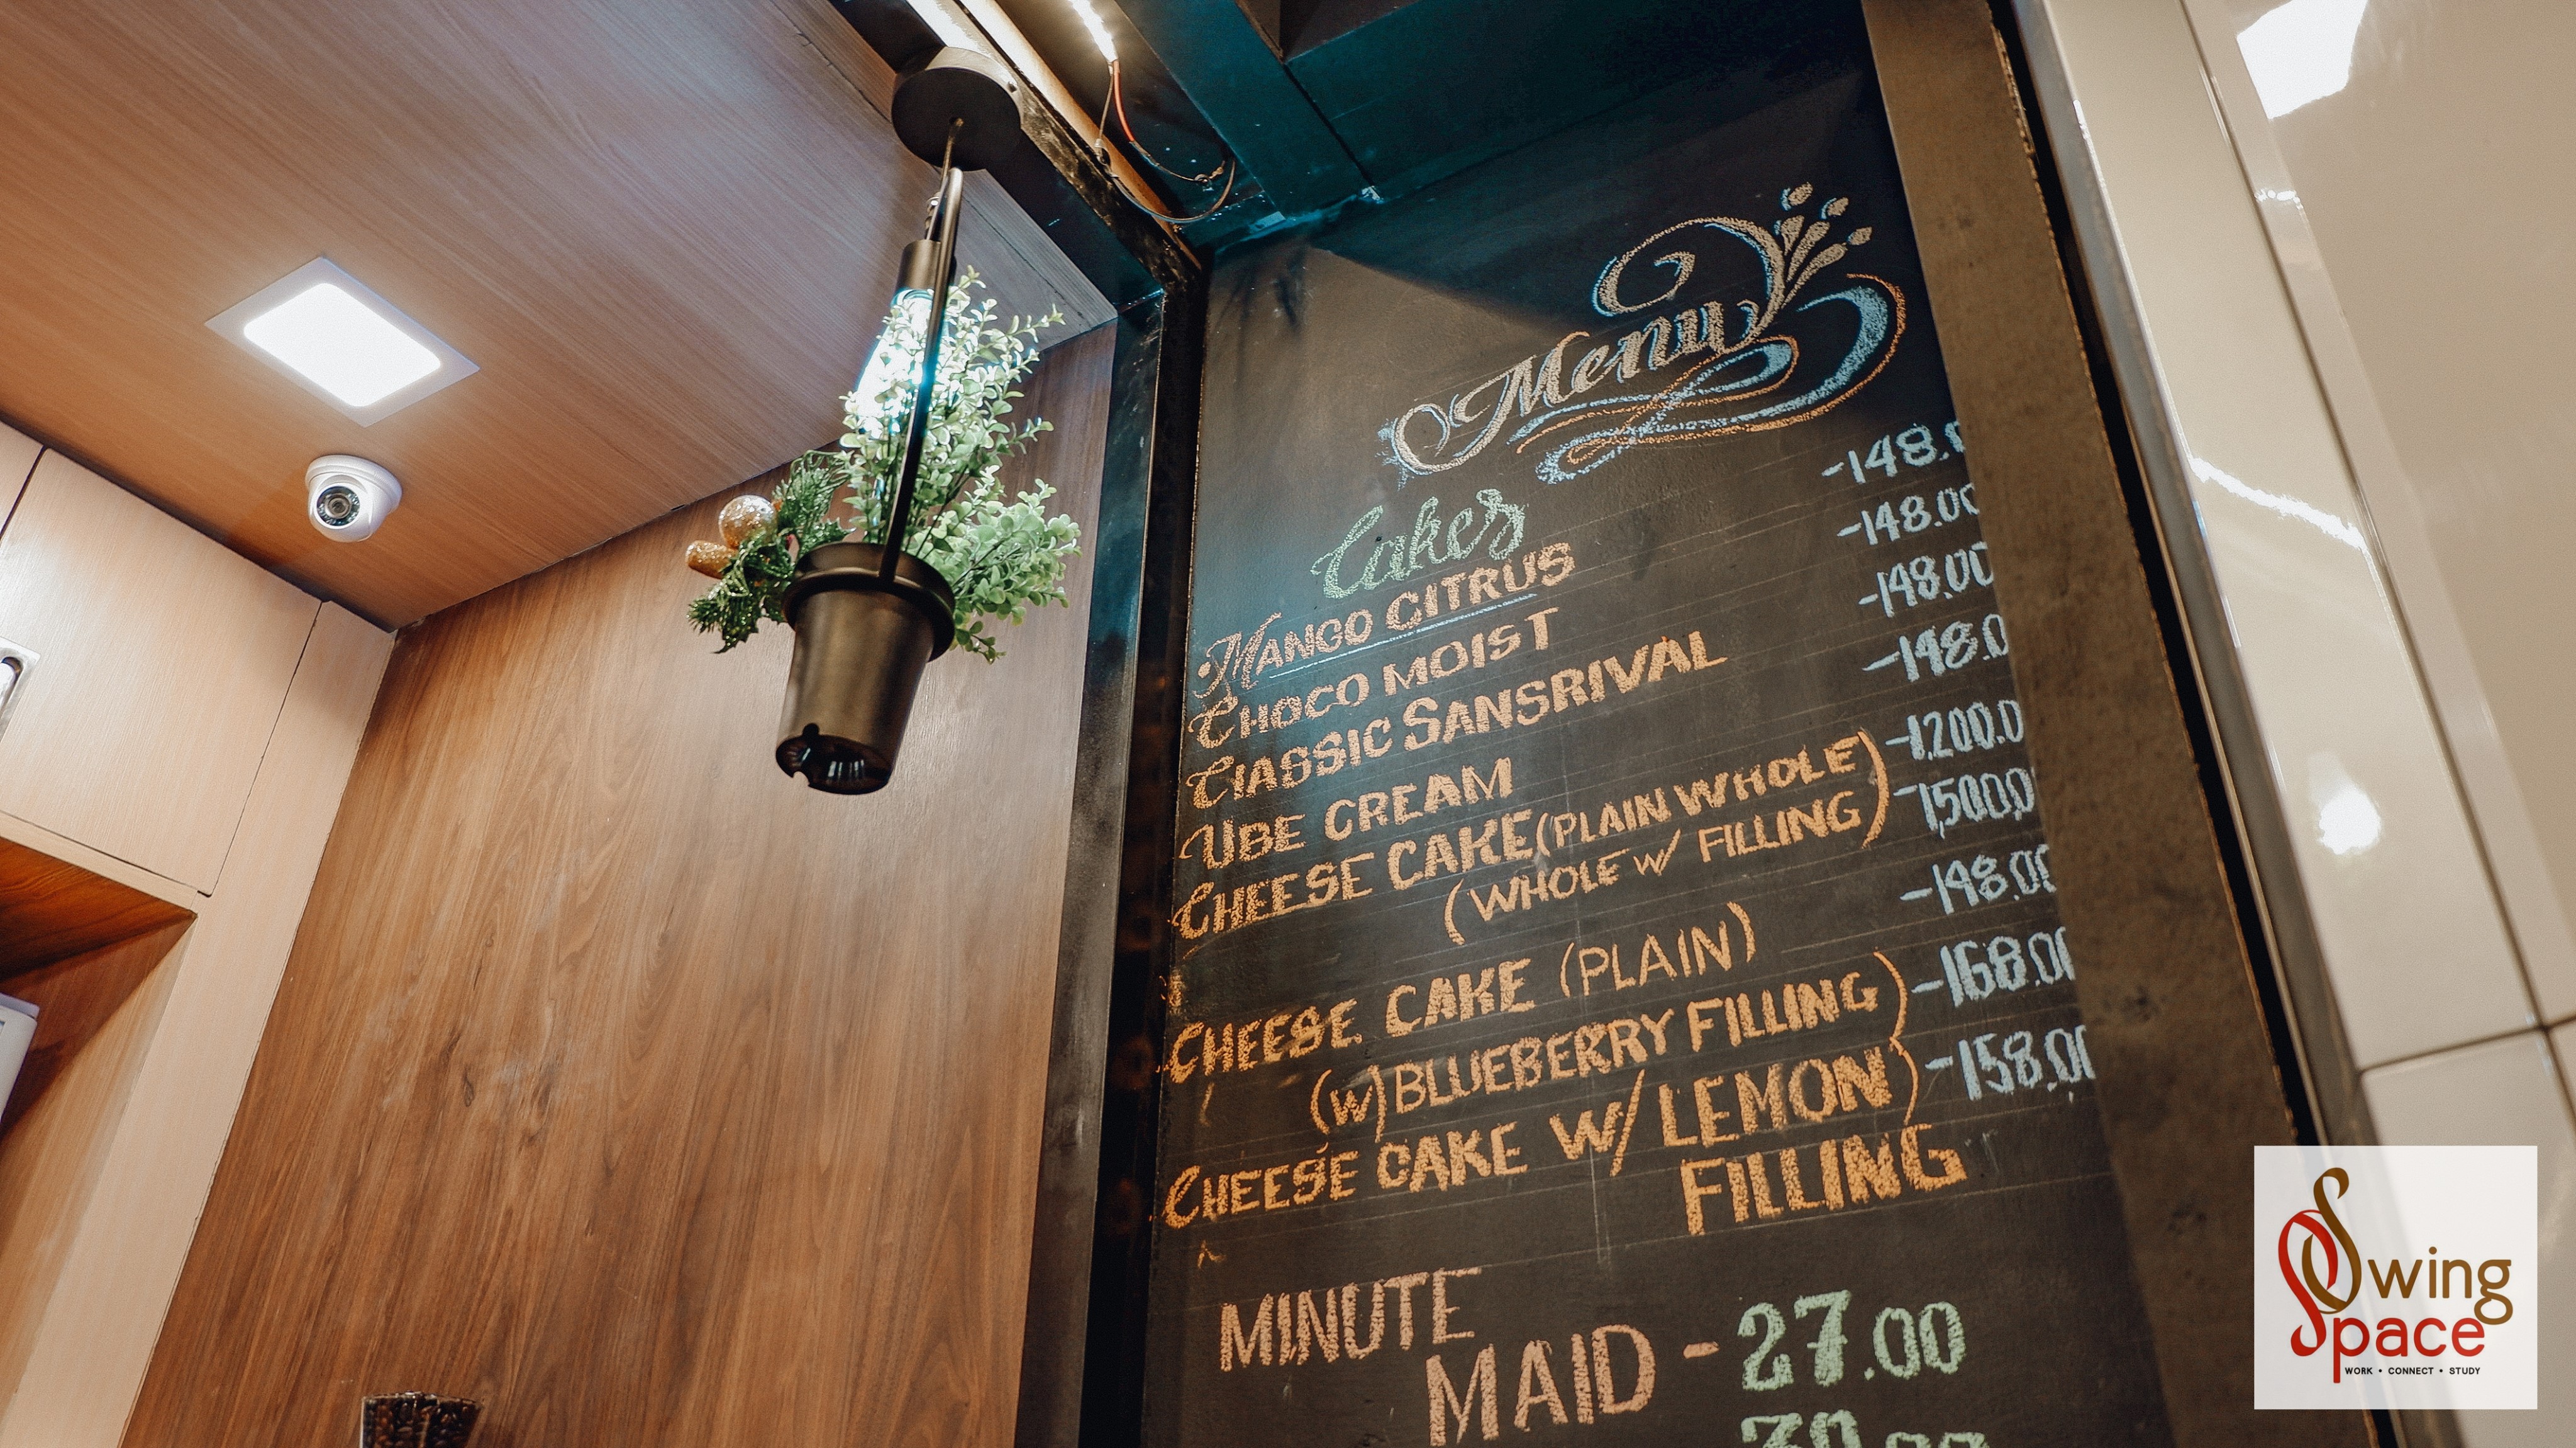 Menu
Cakes
•MANGO CITRUS -148.0
CHOCO MOIST -148.00
ClASSIC SANSRIVAL -148.00
UBE CREAM -148.0
CHEESE CAKE (PLAIN WHOLE) -1,200.0
(WHOLE W/ FILLING) -1,500.0
CHEESE CAKE (PLAIN) -148.00
(W) BLUEBERRY FILLING) -168.00
CHEESE CAKE W/ LEMON) -158.00
FILLING
MINUTE
MAID - 27.00
Swing
Space
WORK • CONNECT • STUDY